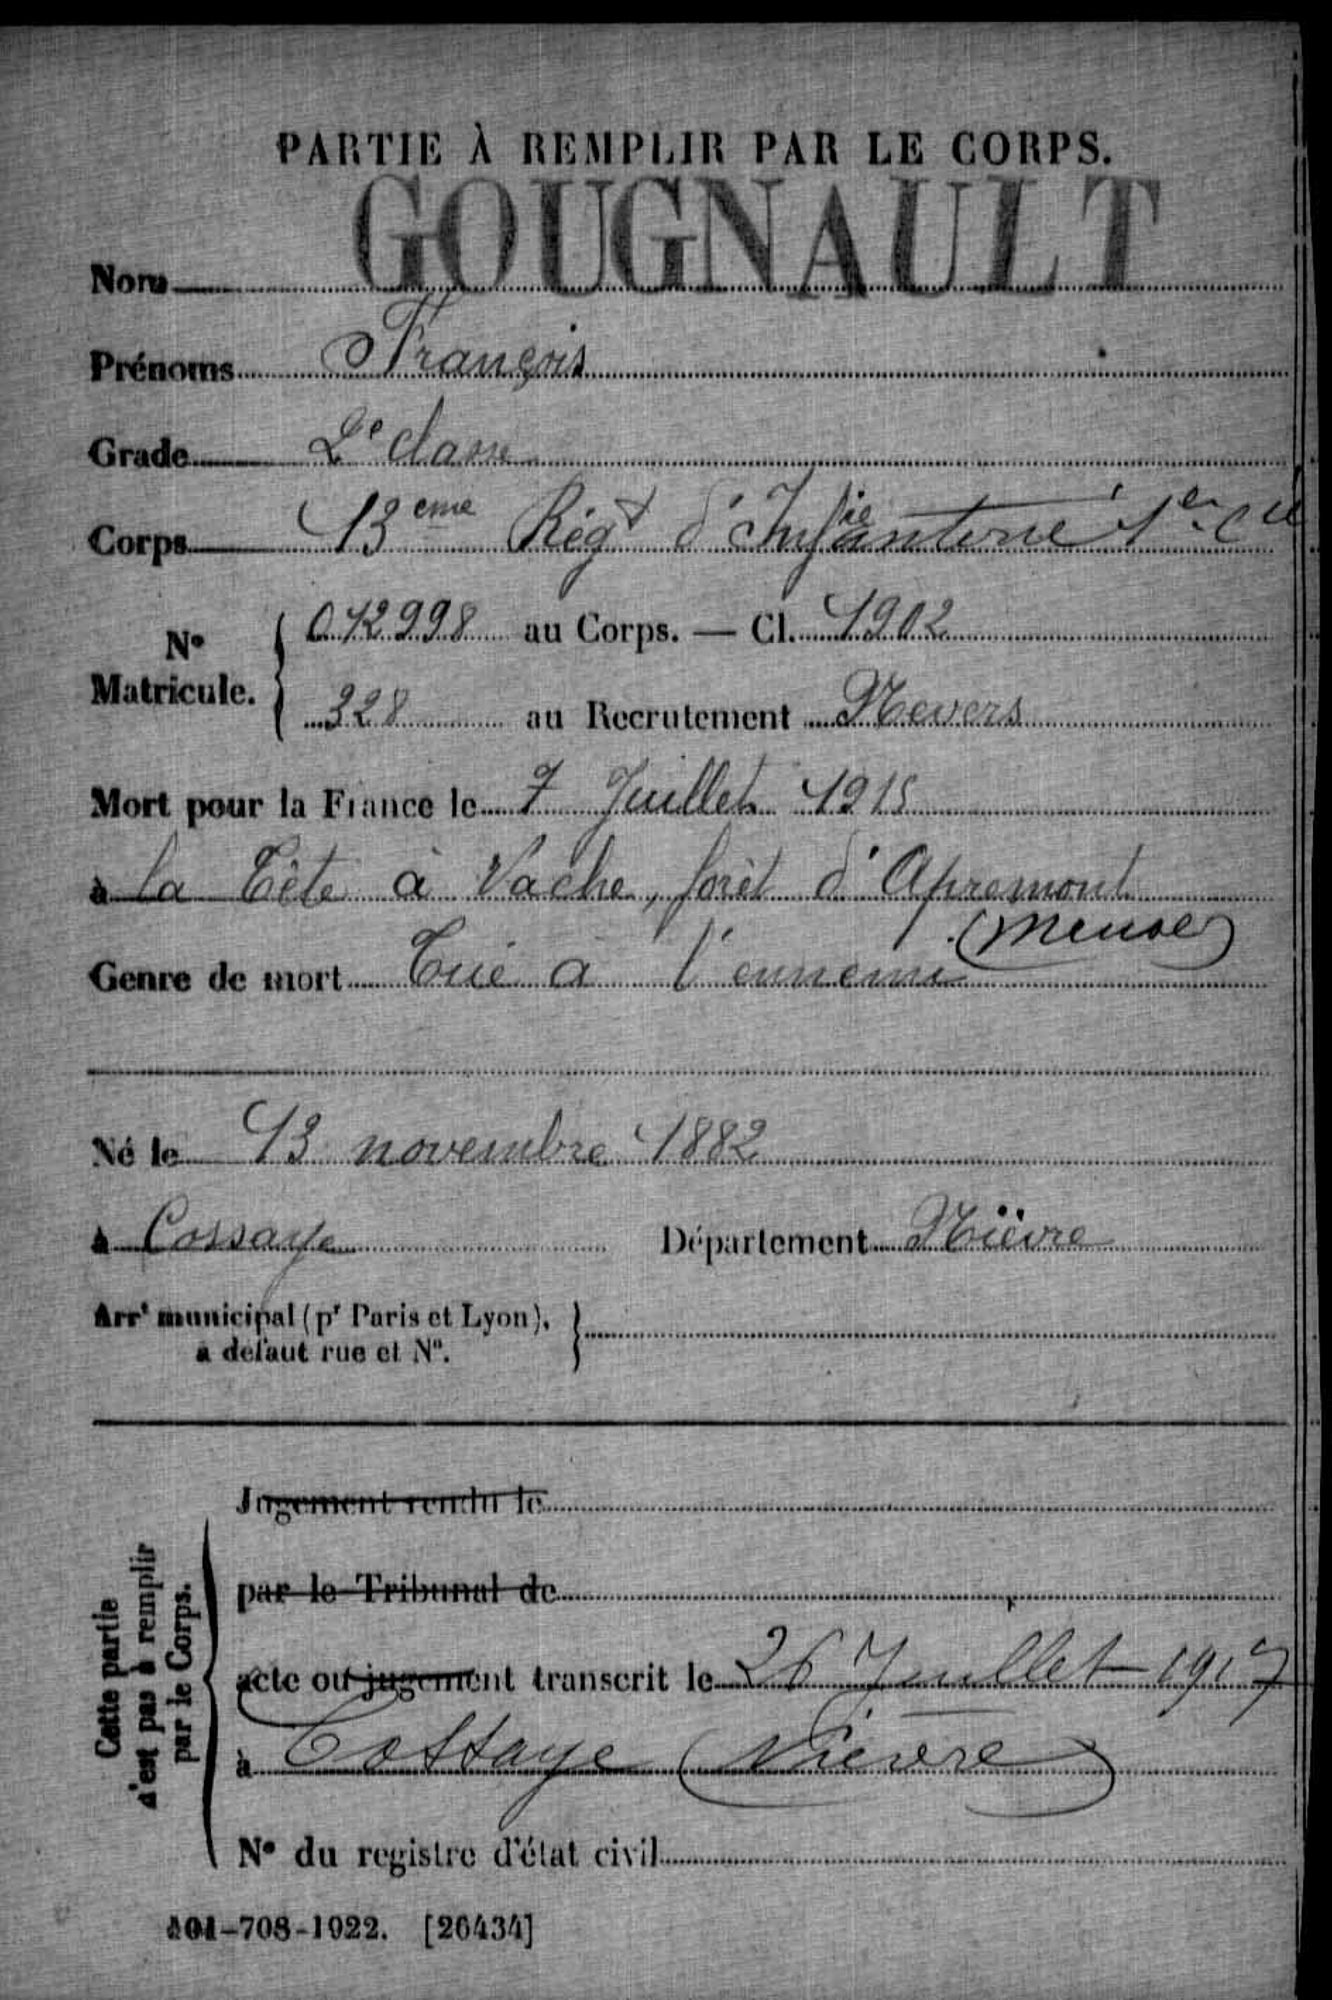 PARTIE À REMPLIR PAR LE CORPS.
Nom GOUGNAULT
Prénoms François
Grade 2e classe
Corps 13eme Régt d'Infanterie 1er Cie
No Matricule. { 012998 au Corps. — Cl. 1902
328 au Recrutement Nevers
Mort pour la France le 7 Juillet 1915
à la Tête à Vache, forêt d'Apremont
(Meuse)
Genre de mort Tué à l'ennemi
Né le 13 novembre 1882
à Cossaye Département Nièvre
Arrt municipal (pr Paris et Lyon), }
à défaut rue et No.
Cette partie
n'est pas à remplir
par le Corps.
Jugement rendu le
par le Tribunal de
acte ou jugement transcrit le 26 Juillet 1917
à Cossaye (Nièvre)
No du registre d'état civil
101-708-1922. [26434]